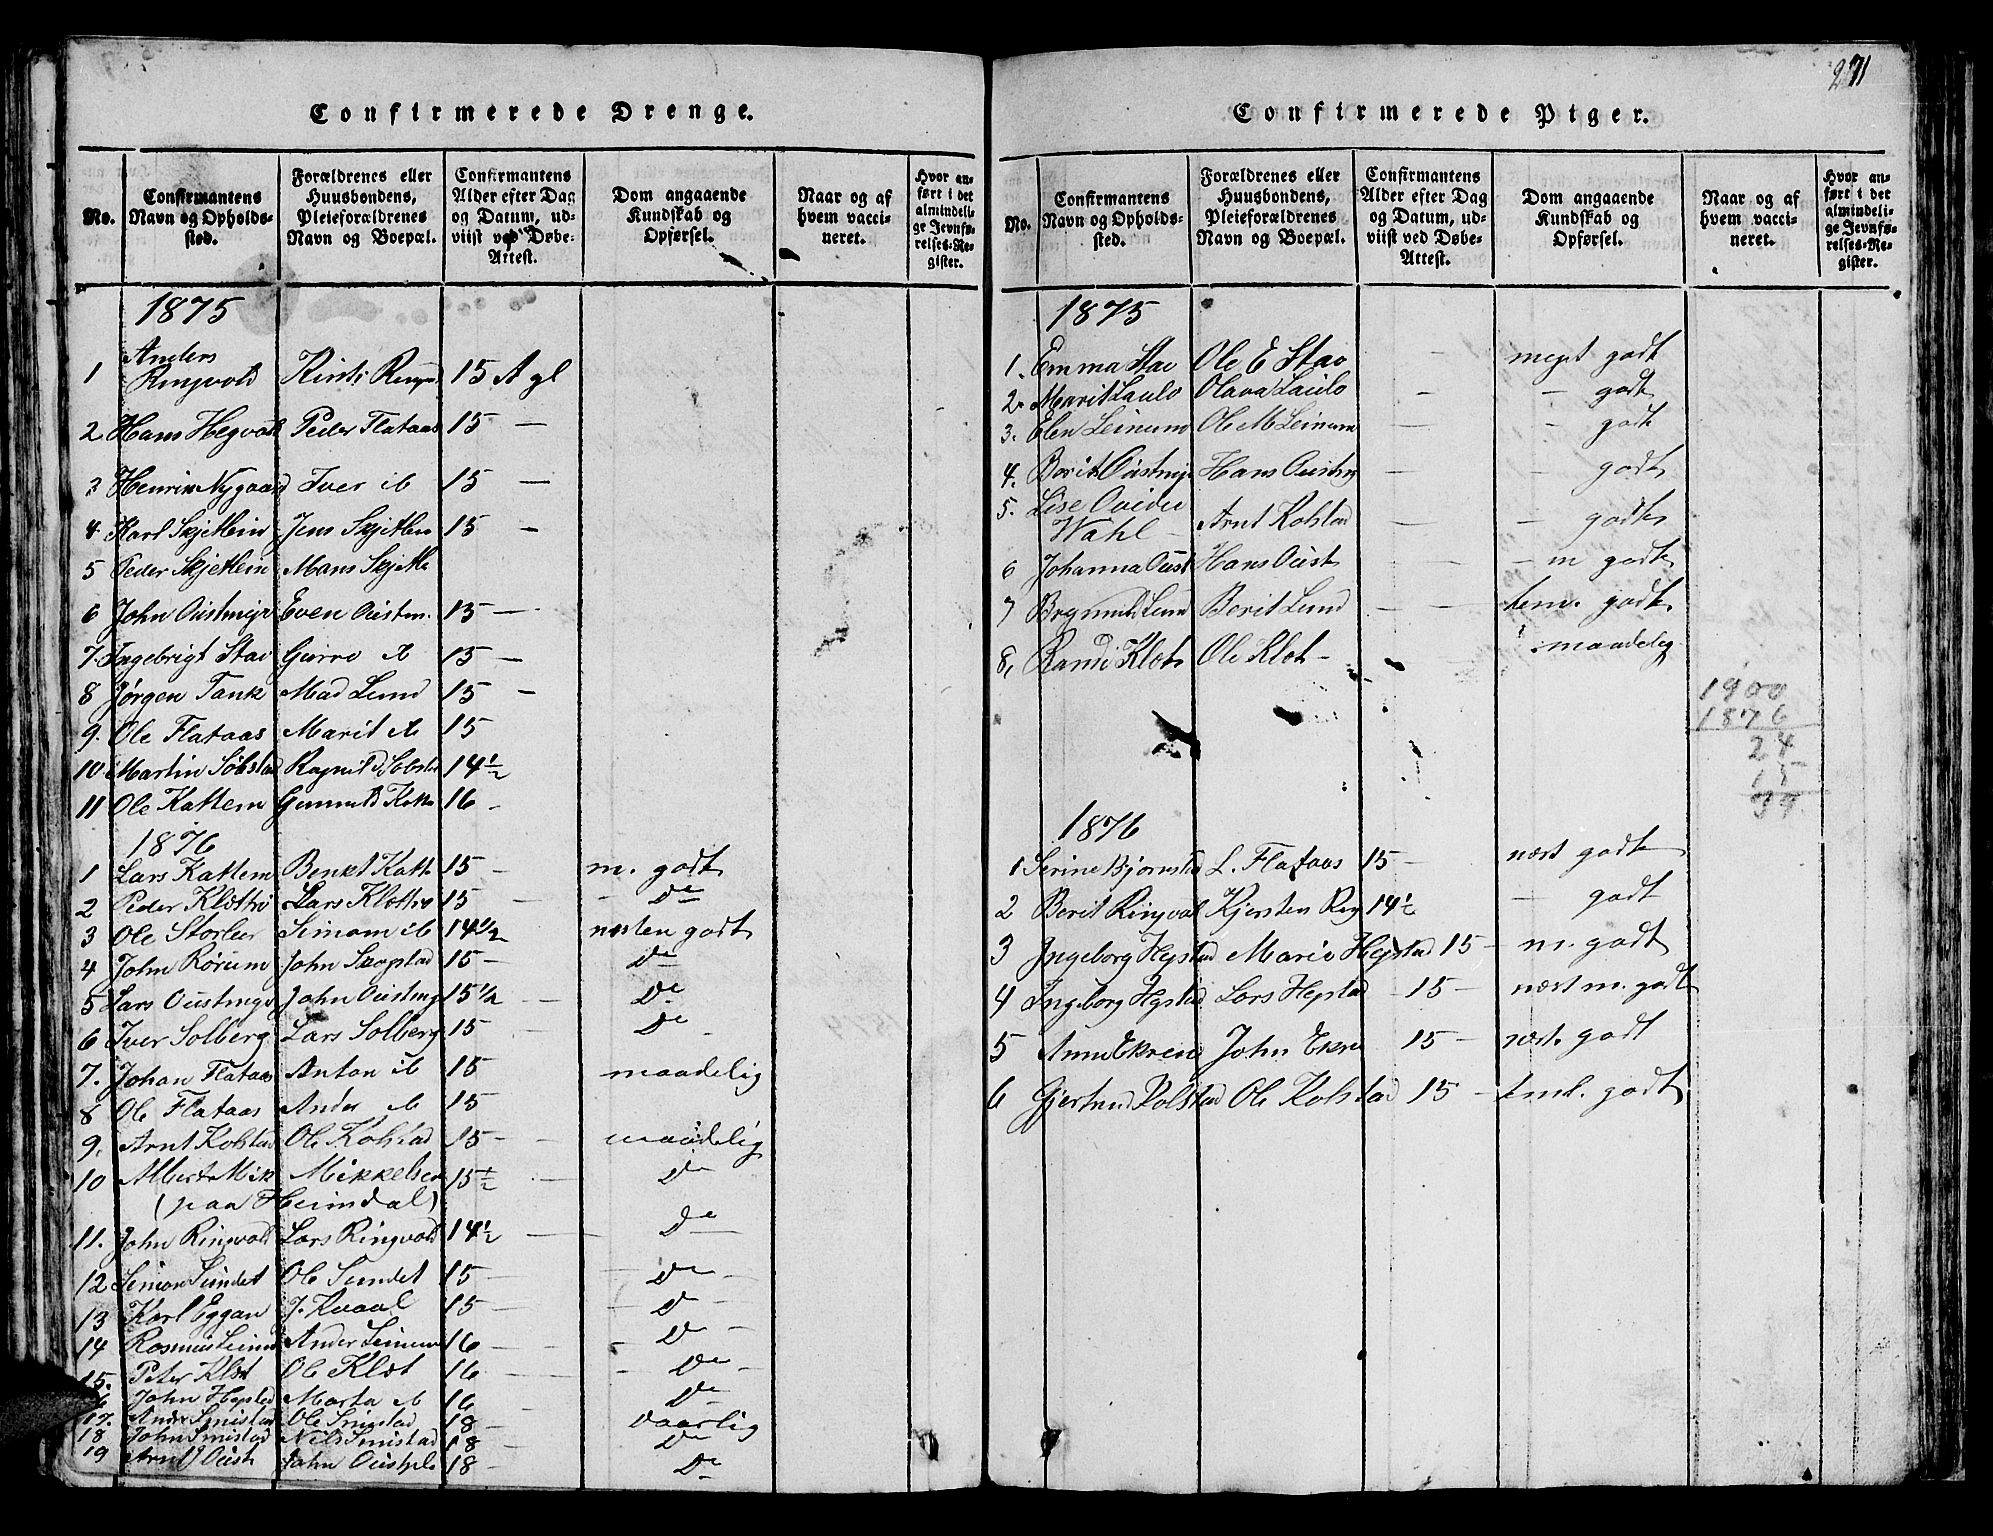 271
Confirmerede Drenge.
No.
Confirmantens Navn og Opholds-sted.
Forældrenes eller Huusbondens, Pleieforældrenes Navn og Boepæl.
Confirmantens Alder efter Dag og Datum, ud-viist ved Døbe-Attest.
Dom angaaende Kundskab og Opførsel.
Naar og af hvem vacci-neret.
Hvor an-ført i det almindeli-ge Jevnfø-relses-Re-gister.
1875
1 Anders Ringvold 15
2 Hans Peder Flataas 15 —
3 Nygaard Iver ib 15 —
4 Karl Skjetlein Jens Skjetlein 15 —
5 Peder Skjetlein Mans Skjetle
6 John Oustmyr Even Oustm. 15 —
7. Ingebrigt Stav Gurro ib 15 —
8 Jørgen Tank Mad Lund 15 —
9. Ole Flataas Marit ib 15
10 Martin Sobstad Ragnild Sobstad 14½
11 Ole Kattem Gunnild Katte 16 -
1876
1 Lars Kattem Benkt Katt 15 - m. godt
2 Peder Klæthe Lars Klæthe 15 - do
3 Ole Storler Simon ib 14½ næsten godt
4 John Rørum John Skogstad 15 - do
5 Lars Oustmyr John Oustmy 15½ do
6 Iver Solberg Lars Solberg 15 do
7. Johan Flataas Anton ib 15 maadelig
8 Ole Flataas Ander ib 15
9. Arnt Kolstad Ole Kolstad 15 - maadelig
10 Albert Mik Mikkelsen 15½ do
(paa Heimdal)
11. John Ringvold Lars Ringvold 14½ do
12 Simon Sundet Ole Sundet 15 - do
13 Karl Eggan J. Kvaal 15 - do
14 Rasmus Leinum Ander Leinum 16 - do
15. Peter Klæt Ole Klæt 16 do
16 John Hepstad Marta ib 16 do
17. Ander Smistad Ole Smistad 18 - daarlig
18 John Smistad Nils Smistad 18 do
19 Arnt Oust John Oust 18 - do
Confirmerede Piger.
No.
Confirmantens Navn og Opholds-sted.
Forældrenes eller Huusbondens, Pleieforældrenes Navn og Boepæl.
Confirmantens Alder efter Dag og Datum, ud-viist ved Døbe-Attest.
Dom angaaende Kundskab og Opførsel.
Naar og af hvem vacci-neret.
Hvor an-ført i det almindeli-ge Jevnfø-relses-Re-gister.
1875
1. Emma Stav Ole E Stav - meget godt
2. Marit Laulo Olava Laulo — - godt
3. Elen Leinum Ole M Leinum — - godt
4. Berit Oustmyr Hans Oustmy — - godt
5. Lise
Wahl - Arnt Kolstad — - godt
6 Johanna Oust Hans Oust - m godt
7 Lund Berit Lund - - tem. godt
8, Randi Klæt Ole Klæt - maadelig
1900
1876
24
15
39
1876
1 Serine Bjørnstad L. Flataas 15 - næst godt
2 Berit Ringval Kjersten Rig 14½ - godt
3 Ingeborg Hepstad Marie Hepstad 15 - m. godt
4 Ingeborg Hepstad Lars Hepstad - 15 - næst m. godt
5 Anne Ekren John Ekre 15 - næst. godt
6 Gjertrud Kolstad Ole Kolstad 15 - teml. godt